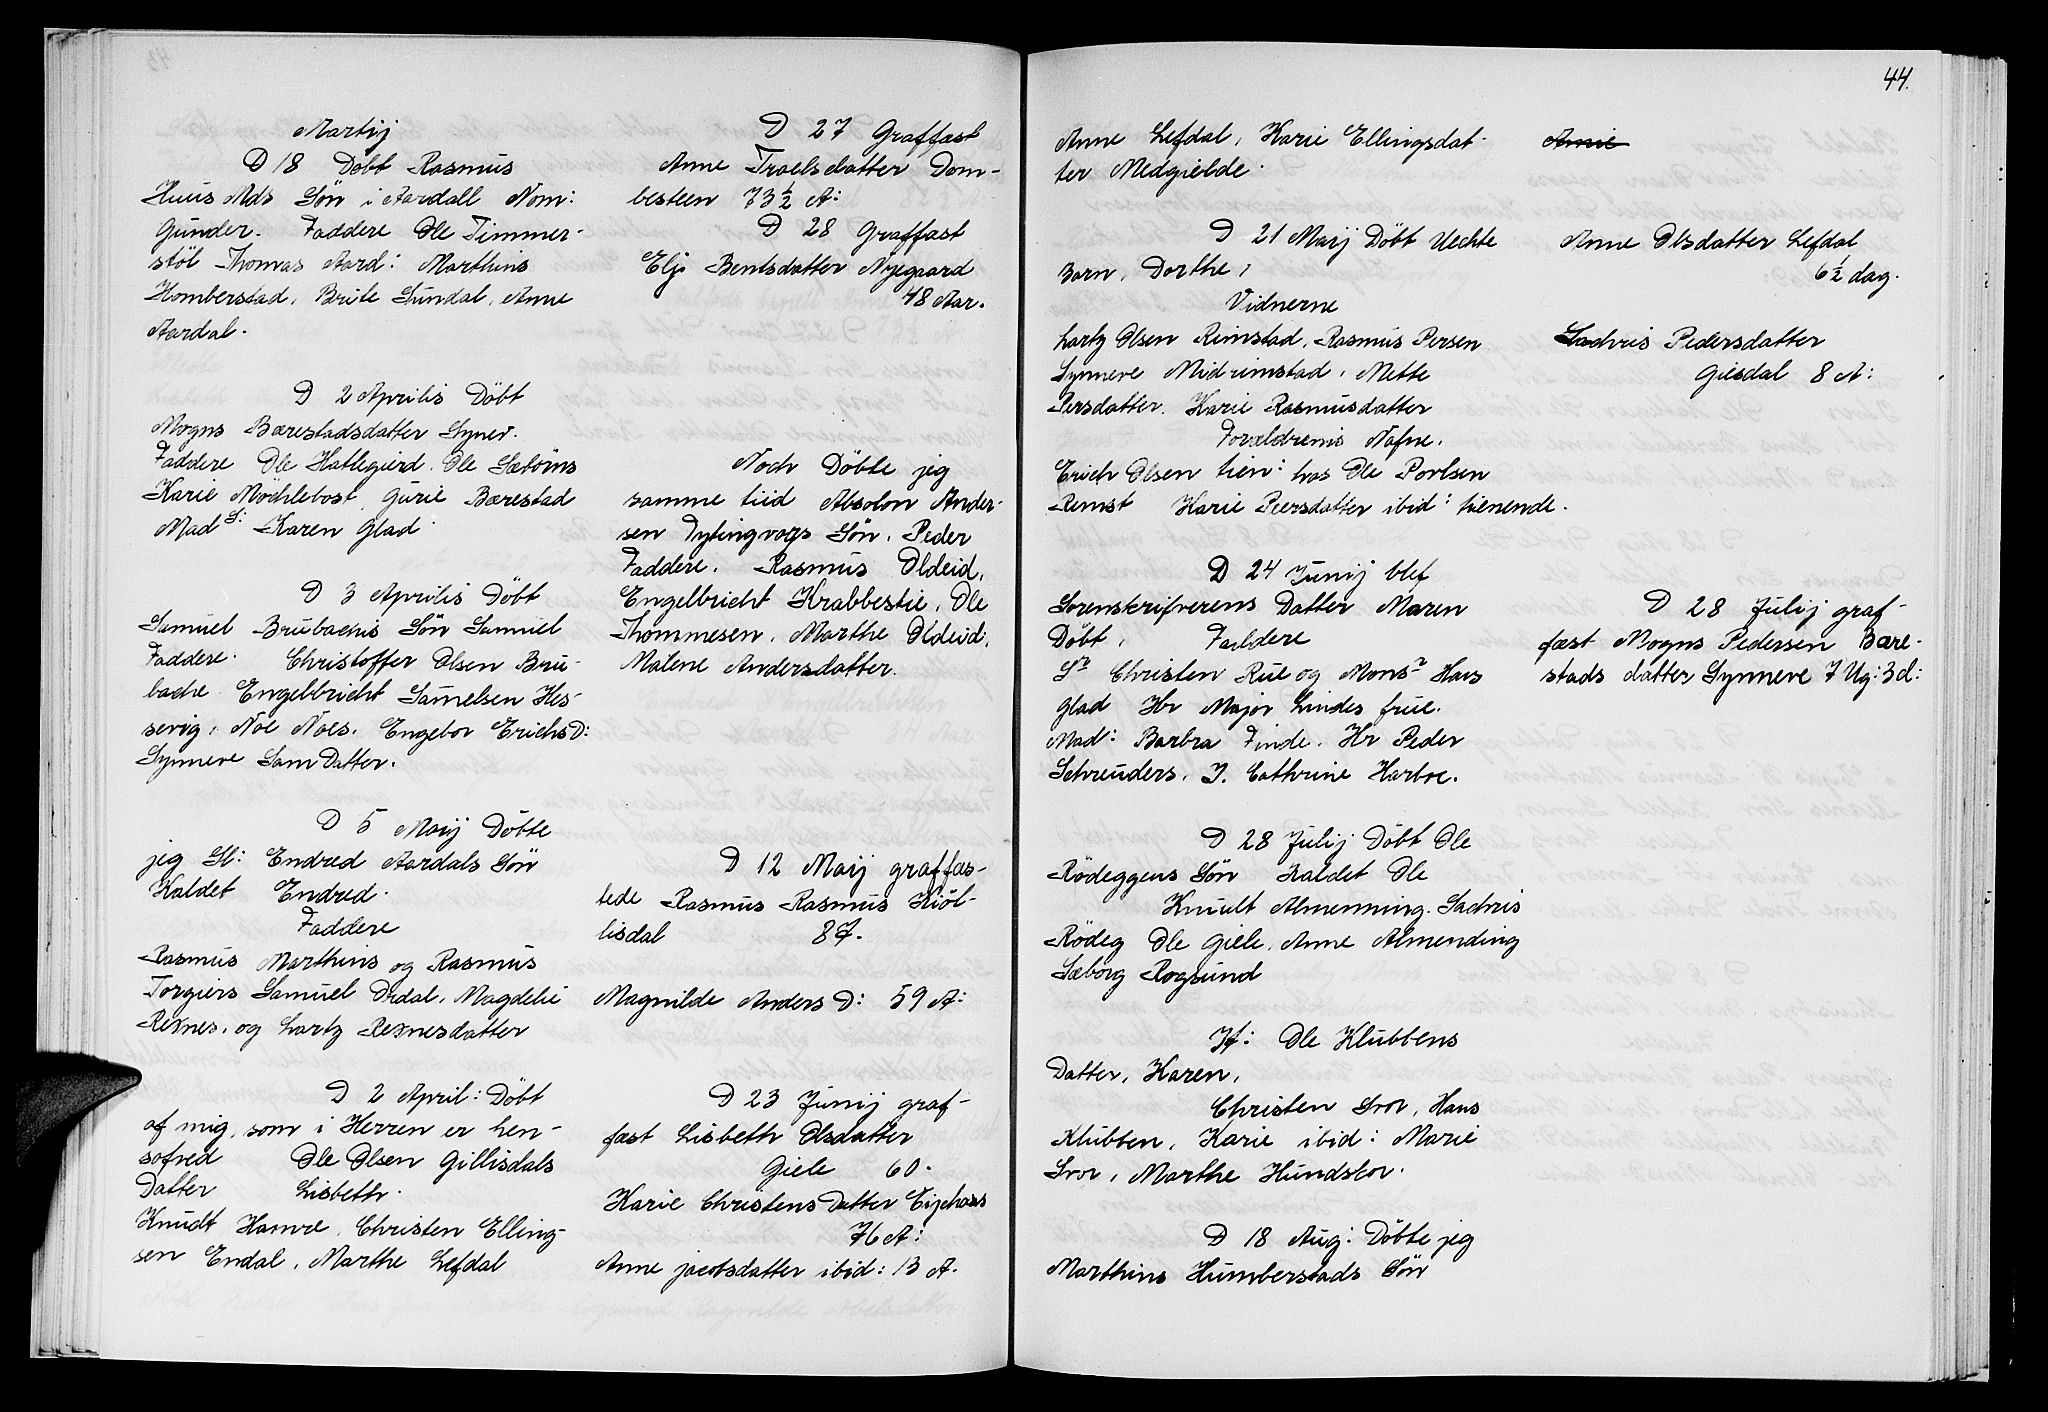 Martij
D 18 Döbt Rasmus
Huus Mds Sön i Aardall Nom:
Gunder. Faddere Ole Timmer-
stöl Thomas Aard: Marthins
Homberstad, Brite Sundal, Anne
Aardal.
D 2 Aprilis Döbt
Mogns Bærestadsdatter Syner.
Faddere Ole Hatlegierd. Ole Sæbörns
Karie Möchlebost, Gurie Bærestad
Mad S: Karen Glad.
D 3 Aprilis Döbt
Samuel Brubachis Sön Samuel
Faddere. Christoffer Olsen Bru-
bache Engelbricht Samelsen Hes-
sevig, Noe Noes, Engebor Erichs D:
Synneve Sam Datter.
D 5 Maij Döbte
jeg Sl: Endred Aardals Sön
Kaldet Endred.
Faddere
Rasmus Marthins og Rasmus
Torgiers Samuel Ordal, Magdelie
Rexnes, og Lartz Rexnesdatter
D 2 April: Döbt
af mig, som i Herren er hen-
sofved Ole Olsen Gillisdals
Datter Lisbeth.
Knudt Hamre, Christen Elling-
sen Endal, Marthe Lefdal
D 27 Graffæst
Anne Traelsdatter Dom-
besteen 73½ A:
D 28 Graffæst
Elji Bentsdatter Nyegaard
48 Aar.
Noch Döbte jeg
samme tiid Absolon Ander-
sen Tytingvogs Sön, Peder
Faddere. Rasmus Oldeid,
Engelbricht Krabbestie, Ole
Thommesen, Marthe Oldeid,
Malene Andersdatter.
D 12 Maij graffæs-
tede Rasmus Rasmus Kiöl-
lisdal 87.
Magnilde Anders D: 59 A:
D 23 Junij graf-
fæst Lisbeth Olsdatter
Giele 60.
Karie Christens Datter Eijehaas
76 A:
Anne jacobsdatter ibid: 13 A.
44.
Anne Lefdal, Karie Ellingsdat-
ter Medgielde.
D 21 Maij Döbt Uechte
Barn, Dorthe,
Vidnerne
Lartz Olsen Rimstad, Rasmus Persen
Synneve Midrimstad, Mette
Persdatter. Karie Rasmusdatter
Forældrenis Nafne.
Erich Olsen tien: hos Ole Porlsen
Rimst Karie Peersdatter ibid: tienende.
D 24 Junij blef
Sorenskrifverens Datter Maren
Döbt, Faddere
Sr Christen Rue og Monsr Hans
Glad Hr Major Lindes frue.
Mad: Barbra Finde. Hr Peder
Schreuders, J. Cathrine Harboe.
D 28 Julij Döbt Ole
Rödeggens Sön Kaldet Ole
Knuult Almenning. Sachris
Rödeg Ole Giele, Anne Almending
Sæborg Rogsund
It: Ole Klubbens
Datter, Karen,
Christen Sror, Hans
Klubben, Karie ibid: Marie
Sror, Marthe Hundskor.
D 18 Aug: Döbte jeg
Marthins Humberstads Sön
Annie
Anne Olsdatter Lefdal
6½ dag.
Sachris Pedersdatter
Giesdal 8 A:
D 28 Julij graf-
fæst Mogns Pedersen Bære-
stads datter Synneve 7 Ug: 3 d: